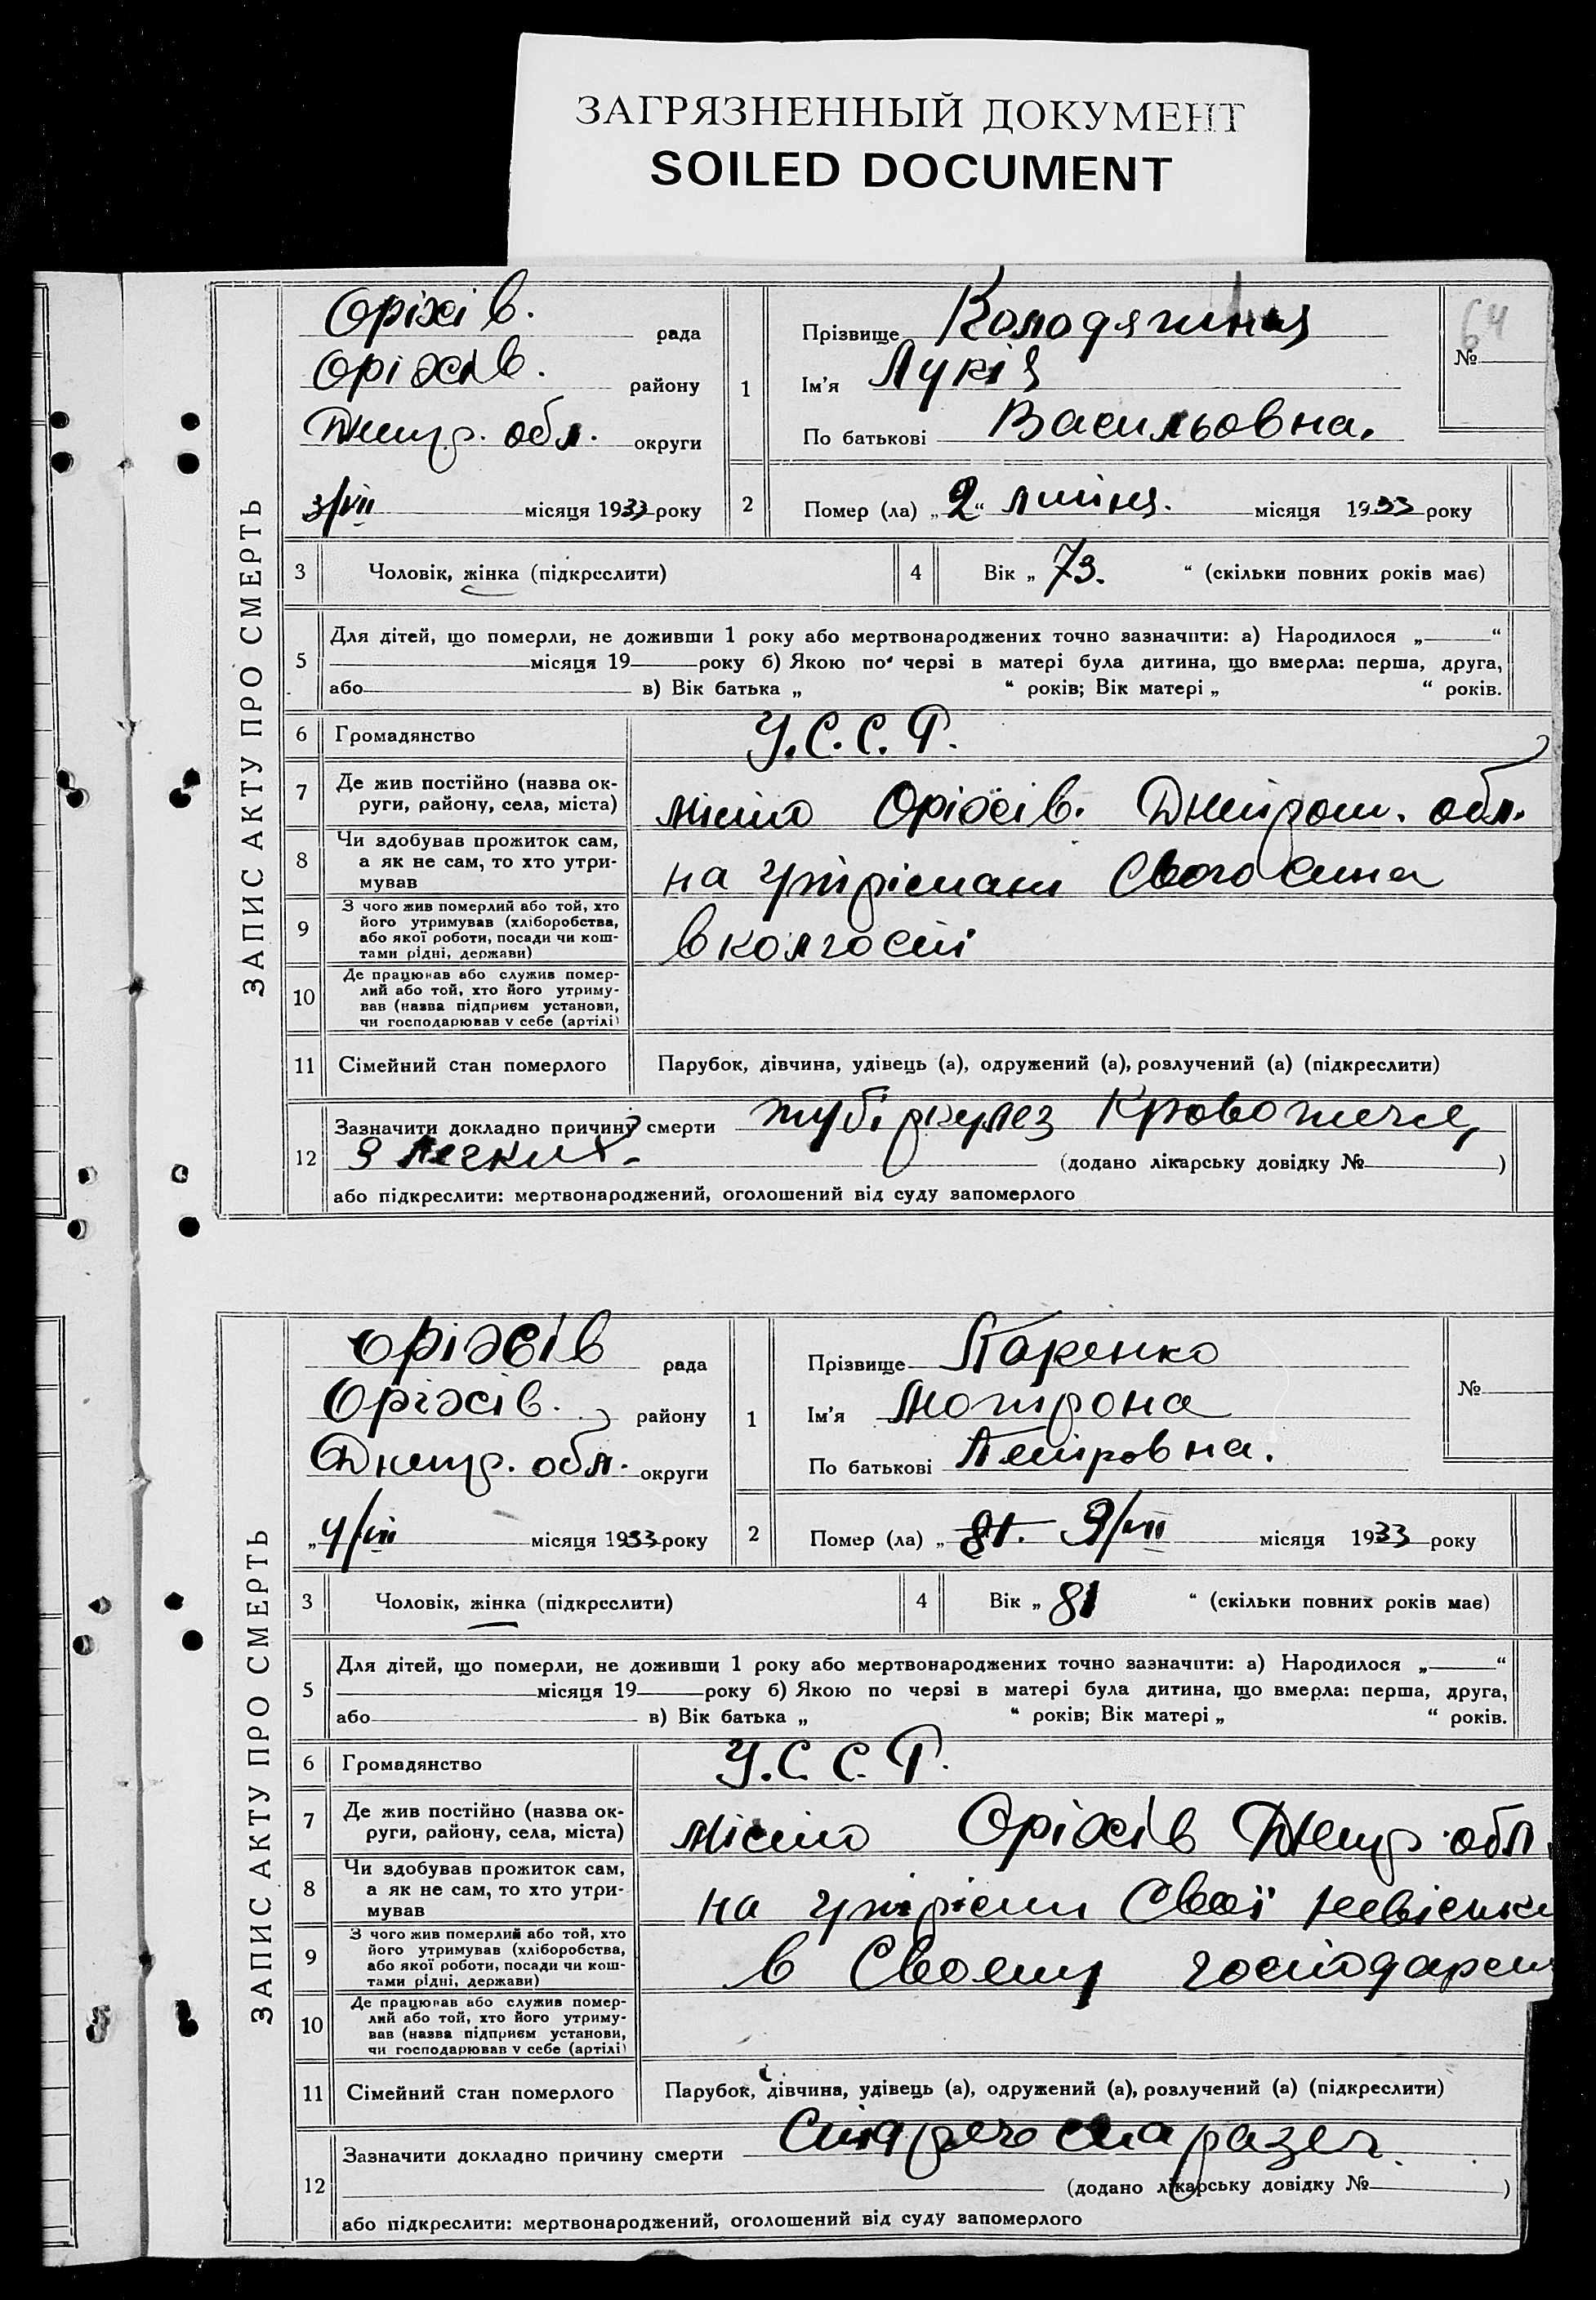 ЗАГРЯЗНЕННЫЙ ДОКУМЕНТ
SOILED DOCUMENT
ЗАПИС АКТУ ПРО СМЕРТЬ
Оріхів. рада
Оріхів. району
Днепр. обл. округи
3/VII місяця 1933 року
1
Прізвище
Ім'я Лукія
По батькові Васильовна.
№ 64
2 Помер (ла) „2“ липня. місяця 1933 року
3 Чоловік, жінка (підкреслити)
4 Вік „ 73. “ (скільки повних років має)
5 Для дітей, що померли, не доживши 1 року або мертвонароджених точно зазначити: а) Народилося „ “
місяця 19 року б) Якою по черзі в матері була дитина, що вмерла: перша, друга,
або в) Вік батька „ “ років; Вік матері „ “ років.
6 Громадянство У.С.С.Р.
7 Де жив постійно (назва ок-
руги, району, села, міста) місто Оріхів. Днепроп. обл.
8 Чи здобував прожиток сам,
а як не сам, то хто утри-
мував
на утрімані Свого Сина
9 З чого жив померлий або той, хто
його утримував (хліборобства,
або якої роботи, посади чи кош-
тами рідні, держави)
в колгоспі
10 Де працював або служив помер-
лий або той, хто його утриму-
вав (назва підприєм установи,
чи господарював у себе (артілі)
11 Сімейний стан померлого Парубок, дівчина, удівець (а), одружений (а), розлучений (а) (підкреслити)
12 Зазначити докладно причину смерти тубіркулез Кровотеча,
З легких. (додано лікарську довідку № )
або підкреслити: мертвонароджений, оголошений від суду запомерлого
ЗАПИС АКТУ ПРО СМЕРТЬ
Оріхів рада
Оріхів. району
Днепр. обл. округи
„4/VII місяця 1933 року
1
Прізвище
Ім'я Мотрона
По батькові Петровна.
№
2 Помер (ла) „ 81. 3/VII місяця 1933 року
3 Чоловік, жінка (підкреслити)
4 Вік „ 81 “ (скільки повних років має)
5 Для дітей, що померли, не доживши 1 року або мертвонароджених точно зазначити: а) Народилося „ “
місяця 19 року б) Якою по черзі в матері була дитина, що вмерла: перша, друга,
або в) Вік батька „ “ років; Вік матері „ “ років.
6 Громадянство У.С.С.Р.
7 Де жив постійно (назва ок-
руги, району, села, міста) місто Оріхів Днепр. обл.
8 Чи здобував прожиток сам,
а як не сам, то хто утри-
мував
на Своєї невістки
9 З чого жив померлий або той, хто
його утримував (хліборобства,
або якої роботи, посади чи кош-
тами рідні, держави)
в Своему господарст
10 Де працював або служив помер-
лий або той, хто його утриму-
вав (назва підприєм установи,
чи господарював у себе (артілі)
11 Сімейний стан померлого Парубок, дівчина, удівець (а), одружений (а), розлучений (а) (підкреслити)
12 Зазначити докладно причину смерти
(додано лікарську довідку № )
або підкреслити: мертвонароджений, оголошений від суду запомерлого